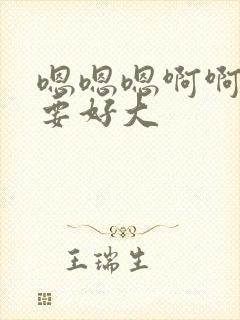 嗯嗯嗯啊啊
要好大
王瑞生